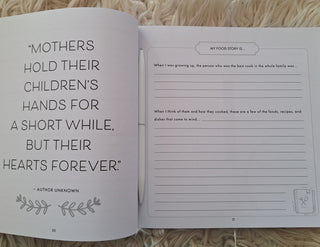 "MOTHERS
HOLD THEIR
CHILDREN'S
HANDS FOR
A SHORT WHILE,
BUT THEIR
HEARTS FOREVER."
– AUTHOR UNKNOWN
MY FOOD STORY IS...
When I was growing up, the person who was the best cook in the whole family was ...
When I think of them and how they cooked, these are a few of the foods, recipes, and
dishes that come to mind ...